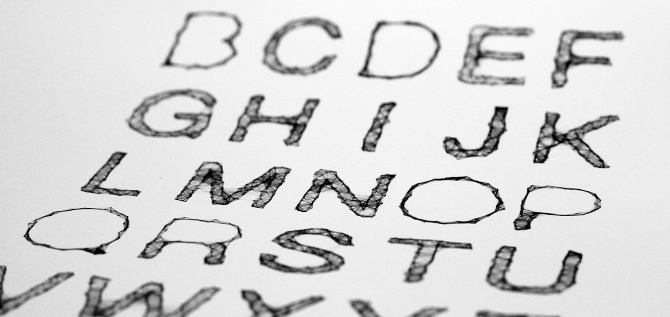 B C D E F
G H I J K
L M N O P
Q R S T U
V W X Y Z